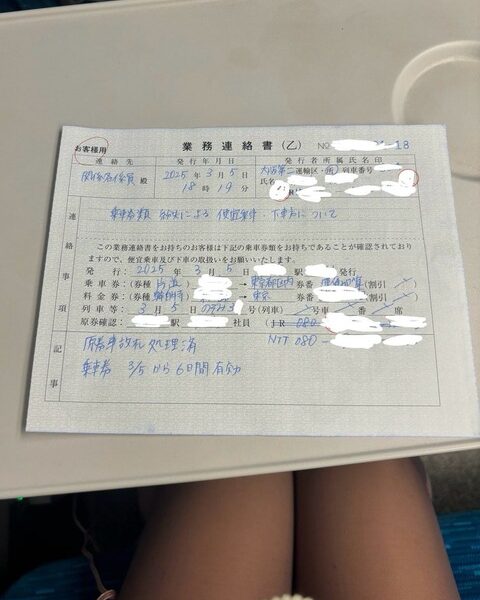 お客様用
業務連絡書(乙) NO 18
連絡先 発行年月日 発行者所属氏名印
関係各係員 殿 2025年3月5日 大阪第二運輸区・ 列車番号
18時19分 氏名
連絡事項
乗車券類 紛失による 便宜乗車 下車方について
この業務連絡書をお持ちのお客様は下記の乗車券類をお持ちであることが確認されており
ますので、便宜乗車及び下車の取扱いをお願いします。
発行:2025年3月5日 駅 発行
乗車券:(券種 片道 → 東京都区内 券番 (割引
料金券:(券種 → 東京 券番 (割引
列車等:3月5日 のぞみ 号(列車) 号車 番 席
原券確認: 駅 社員 (JR 080
NTT 080
記事
原券改札処理済
乗車券 3/5から6日間有効